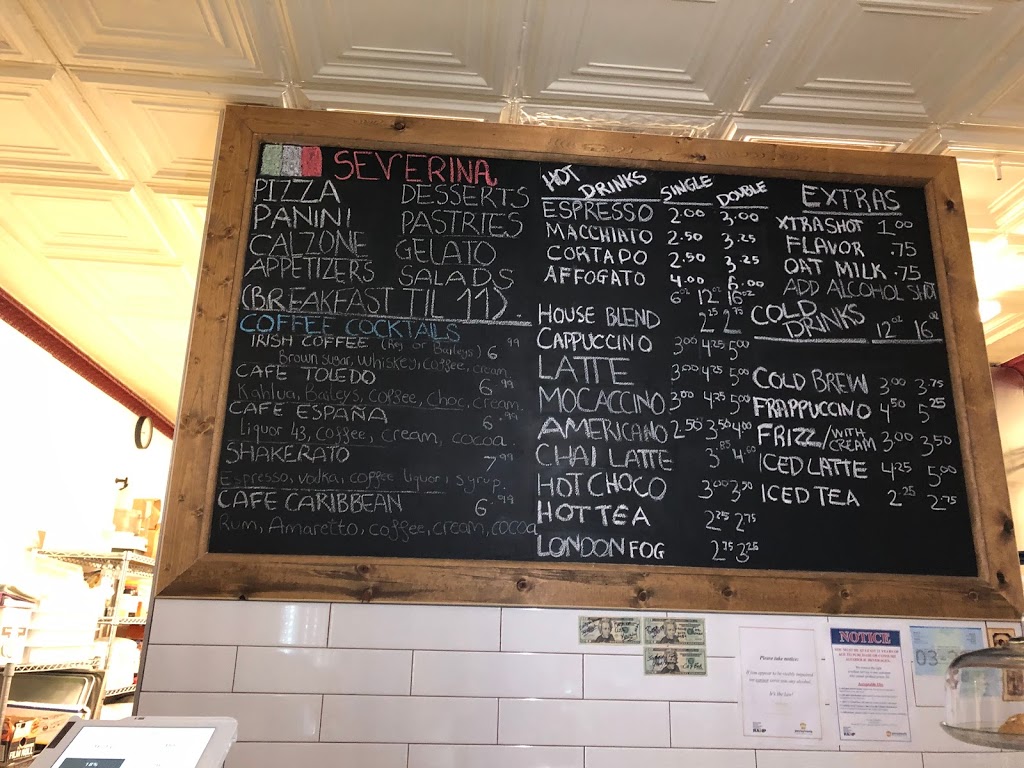 SEVERINA
PIZZA DESSERTS
PANINI PASTRIES
CALZONE GELATO
APPETIZERS SALADS
(BREAKFAST TIL 11).
COFFEE COCKTAILS
IRISH COFFEE (Reg or Baileys) 6.99
Brown sugar, whiskey, coffee, cream
CAFE TOLEDO 6.99
Kahlua, Baileys, coffee, choc, cream.
CAFE ESPAÑA 6.99
Liquor 43, coffee, cream, cocoa.
SHAKERATO 7.99
Espresso, vodka, coffee liquor, syrup.
CAFE CARIBBEAN 6.99
Rum, Amaretto, coffee, cream, cocoa
HOT DRINKS SINGLE DOUBLE
ESPRESSO 2.00 3.00
MACCHIATO 2.50 3.25
CORTADO 2.50 3.25
AFFOGATO 4.00 6.00
6oz 12oz 16oz
HOUSE BLEND 2.25 2.75
CAPPUCCINO 3.00 4.25 5.00
LATTE 3.00 4.25 5.00
MOCACCINO 3.00 4.25 5.00
AMERICANO 2.50 3.50 4.00
CHAI LATTE 3.85 4.60
HOT CHOCO 3.00 3.50
HOT TEA 2.25 2.75
LONDON FOG 2.75 3.25
EXTRAS
XTRA SHOT 1.00
FLAVOR .75
OAT MILK .75
ADD ALCOHOL SHOT
COLD DRINKS 12oz 16oz
COLD BREW 3.00 3.75
FRAPPUCCINO 4.50 5.25
FRIZZ/WITH CREAM 3.00 3.50
ICED LATTE 4.25 5.00
ICED TEA 2.25 2.75
Please take notice:
It's the law!
NOTICE